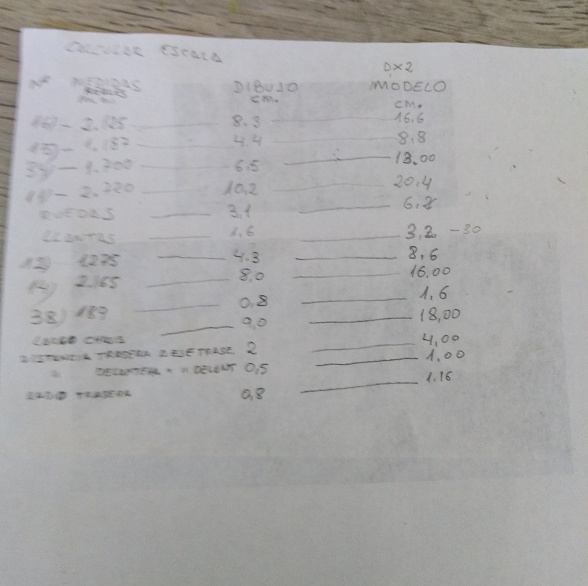 CALCULAR ESCALA
DX2
Nº MEDIDAS DIBUJO MODELO
REALES CM. CM.
m.m.
16) - 2.125 8.3 16,6
15) - 1.187 4.4 8,8
1.700 6,5 13.00
2.720 10,2 20,4
RUEDAS 3,1 6,2
LLANTAS 1,6 3,2 - 30
12) 1275 4.3 8,6
14) 2.165 8,0 16,00
38) 189 0,8 1,6
LARGO 9,0 18,00
DISTANCIA TRASERA 2 EJE TRASE 2 4,00
" DELANTERA " " DELENT 0,5 1,00
TRASERA 0,8 1.16